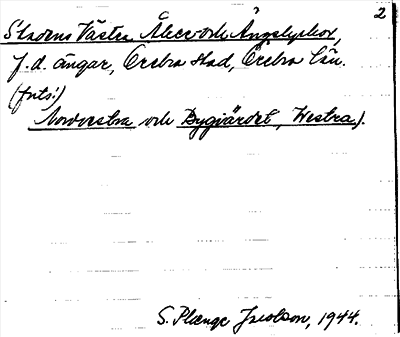 2
Stadens Västra Åker och Ängslyckor,
f.d. ängar, Örebro stad, Örebro län.
(forts:)
Nordvestra och Bygärdet, Westra).
S. Plænge Jacobson, 1944.